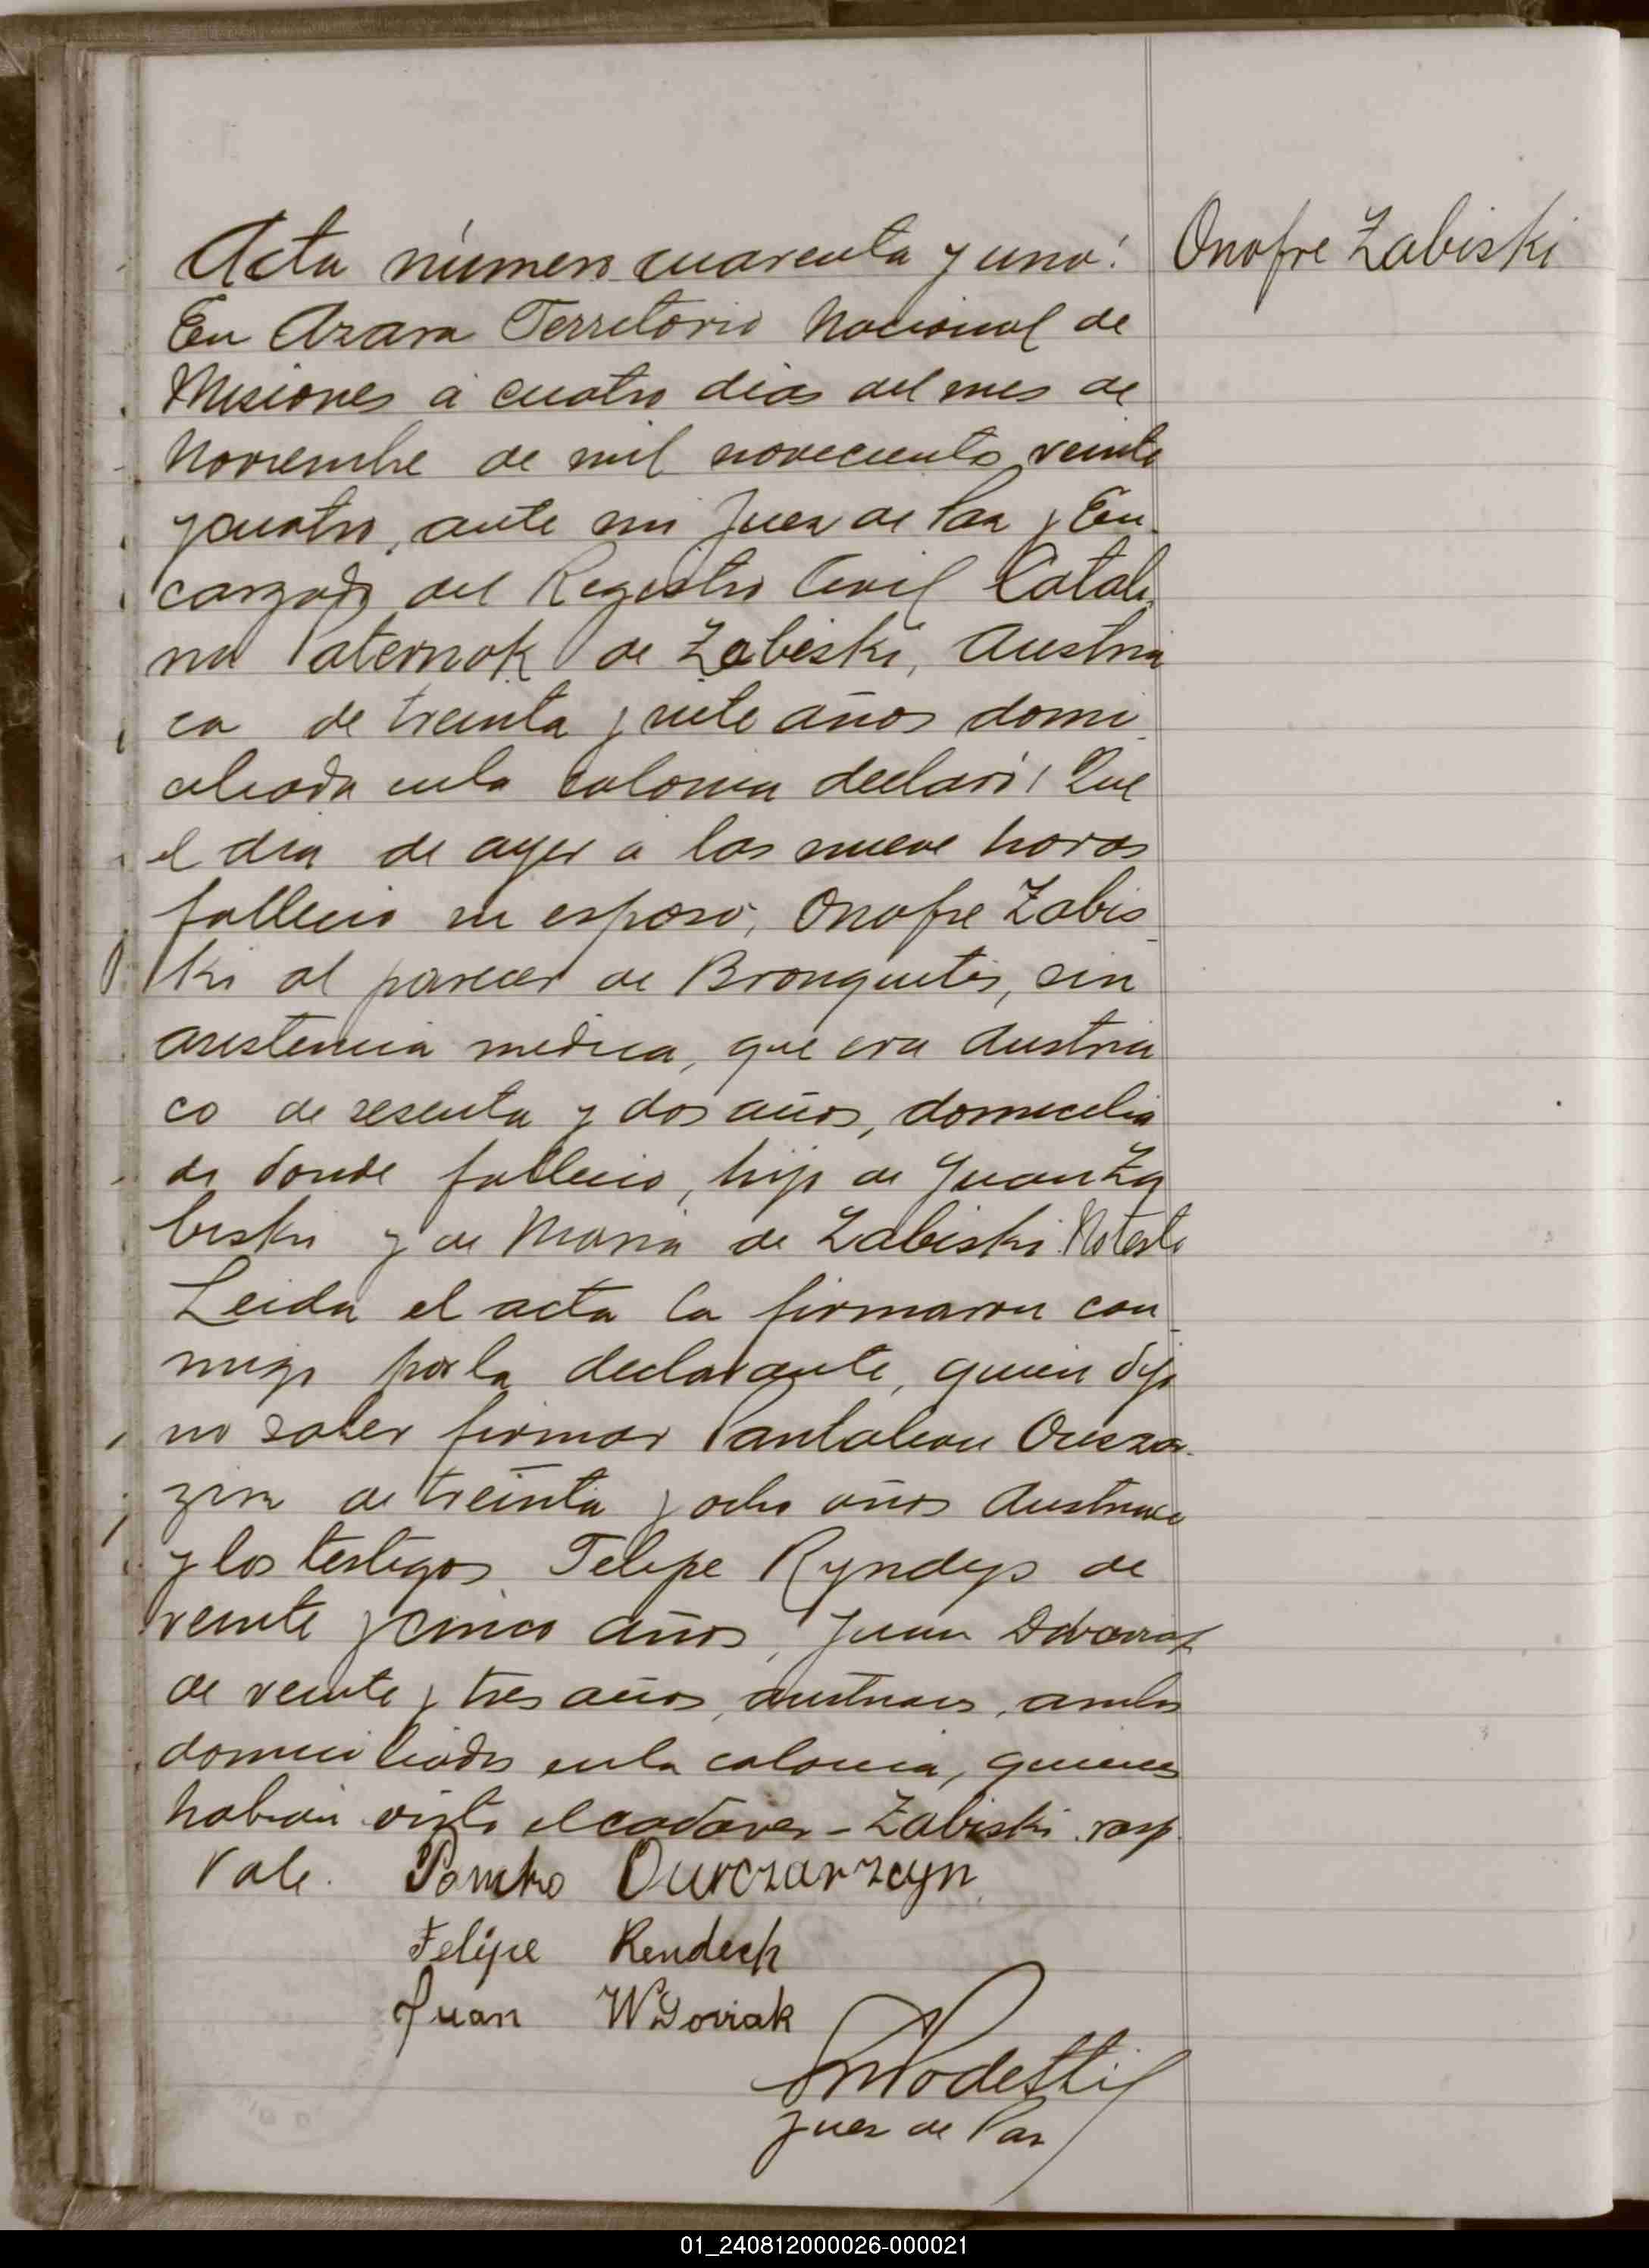 Acta número cuarenta y uno:
Onofre Zabiski
En Azara Territorio Nacional de
Misiones a cuatro dias del mes de
Noviembre de mil novecientos veinte
y cuatro, ante mi Juez de Paz y En-
cargado del Registro Civil Catali-
na Paternok de Zabiski, Austria
ca de treinta y siete años domi
ciliada en la colonia declaró: Que
el dia de ayer a las nueve horas
fallecio su esposo, Onofre Zabis
ki al parecer de Bronquitis, sin
asistencia medica, que era Austria
co de sesenta y dos años, domicilia
do donde fallecio, hijo de Juan Za
biski y de Maria de Zabiski. No testo
Leida el acta la firmaron con
migo por la declarante, quien dijo
no saber firmar Pantaleon
de treinta y ocho años Austriaco
y los testigos Felipe Ryndys de
veinte y cinco años, Juan
de veinte y tres años, austriacos, ambos
domiciliados en la colonia, quienes
habian visto el cadaver - Zabiski rasp.
Vale. Owczarzcyn
Felipe Rendech
Juan Wdoviak
Podetti
Juez de Paz
01_240812000026-000021